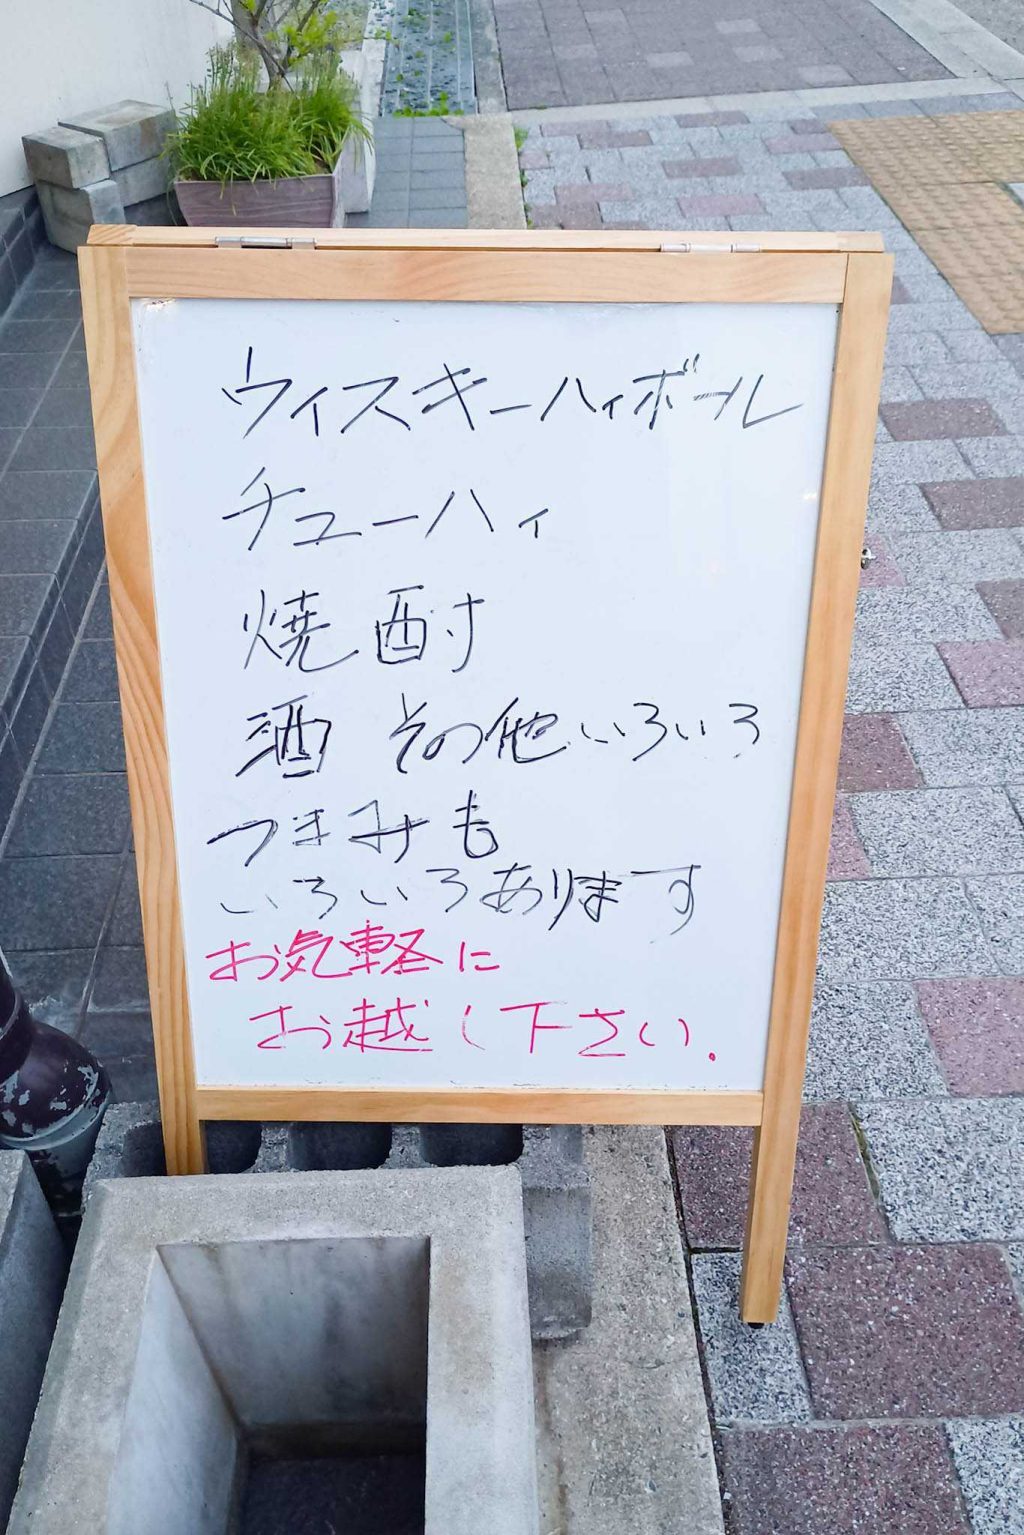 ウィスキーハイボール
チューハイ
焼酎
酒 その他いろいろ
つまみも
いろいろあります
お気軽に
お越し下さい.